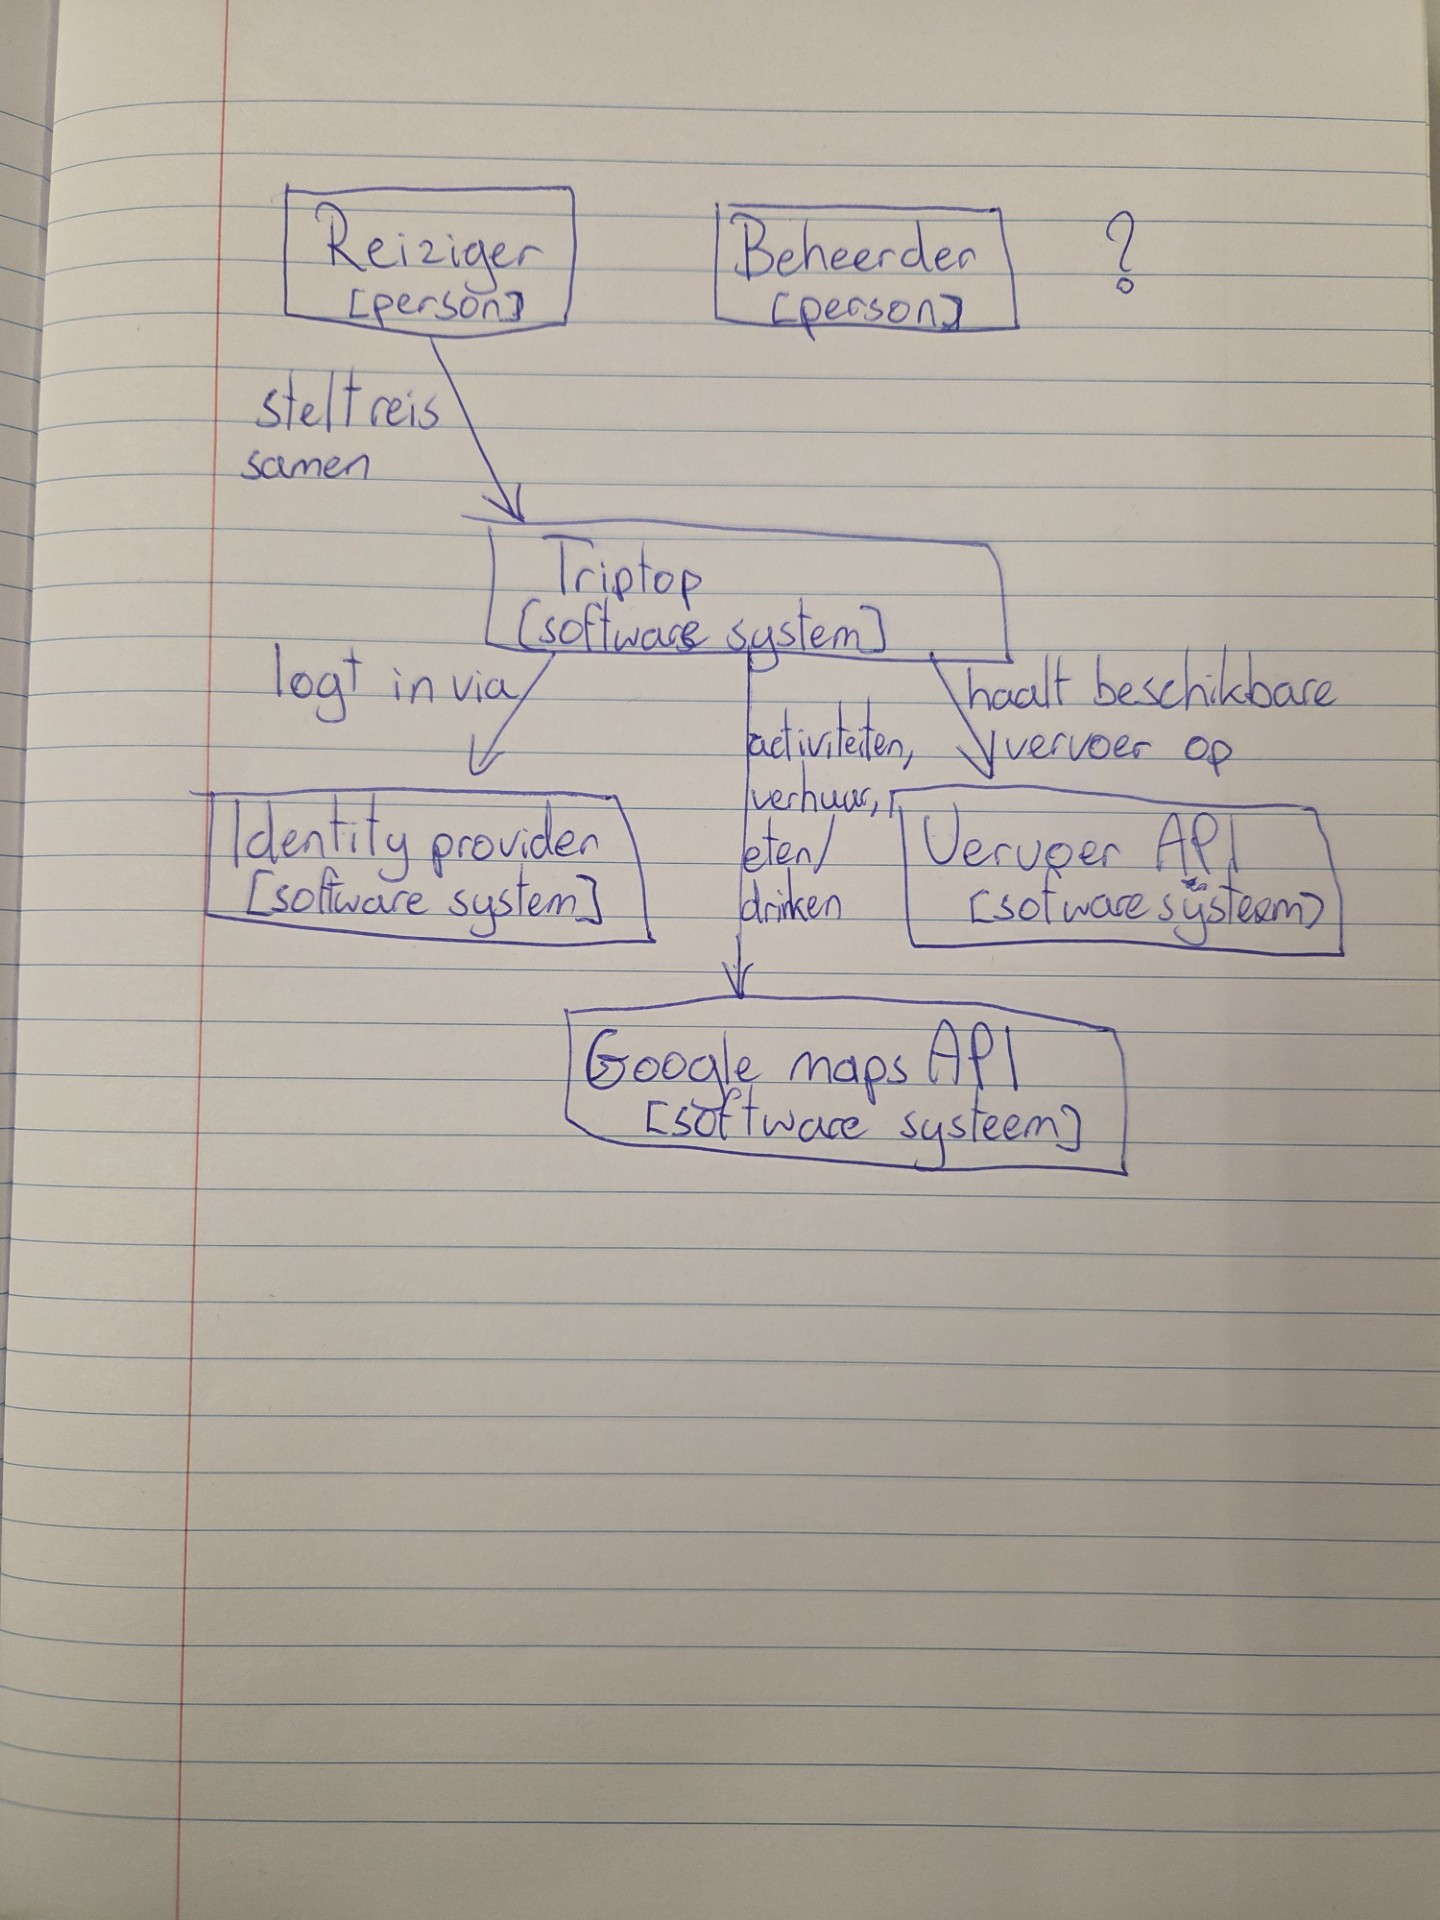 Reiziger
[person]
Beheerder
[person]
?
stelt reis
samen
Triptop
[software system]
logt in via
activiteiten,
verhuur,
eten/
drinken
haalt beschikbare
vervoer op
Identity provider
[software system]
Vervoer API
[sofware systeem]
Google maps API
[software systeem]